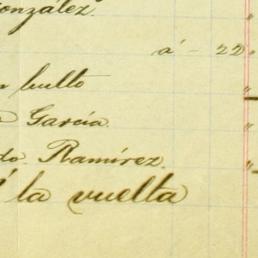 onzález.
á - 22
bulto
García.
do Ramírez.
á la vuelta